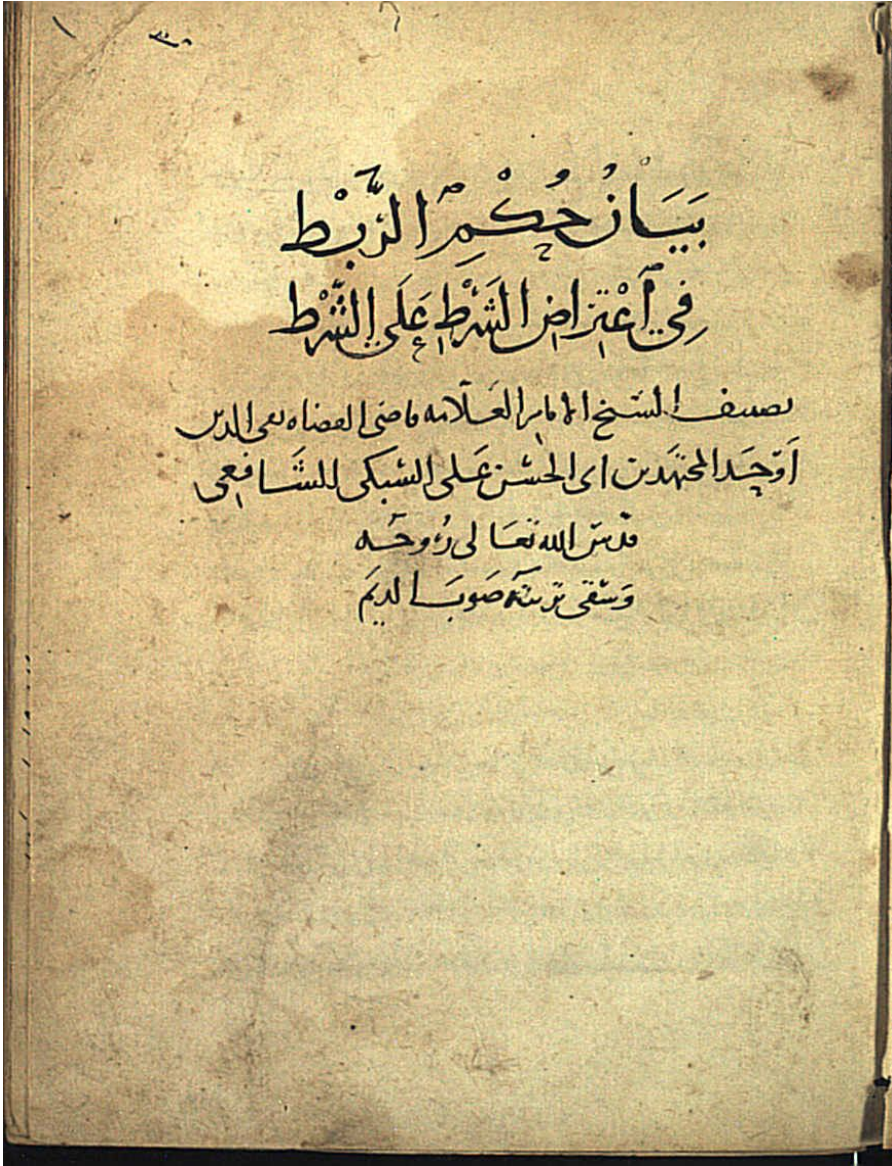 بَيَانُ حُكْمِ الرَّبْط
فِي اعْتِرَاضِ الشَّرْطِ عَلَى الشَّرْط
تصنيف الشيخ الامام العلامه قاضى القضاه تقى الدين
أَوْحَد المجتهدين ابى الحسن عَلى السُبكى الشافعى
قدس الله تعَالى رُوحَه
وَسَقى تربتَهُ صَوبَ الديَم